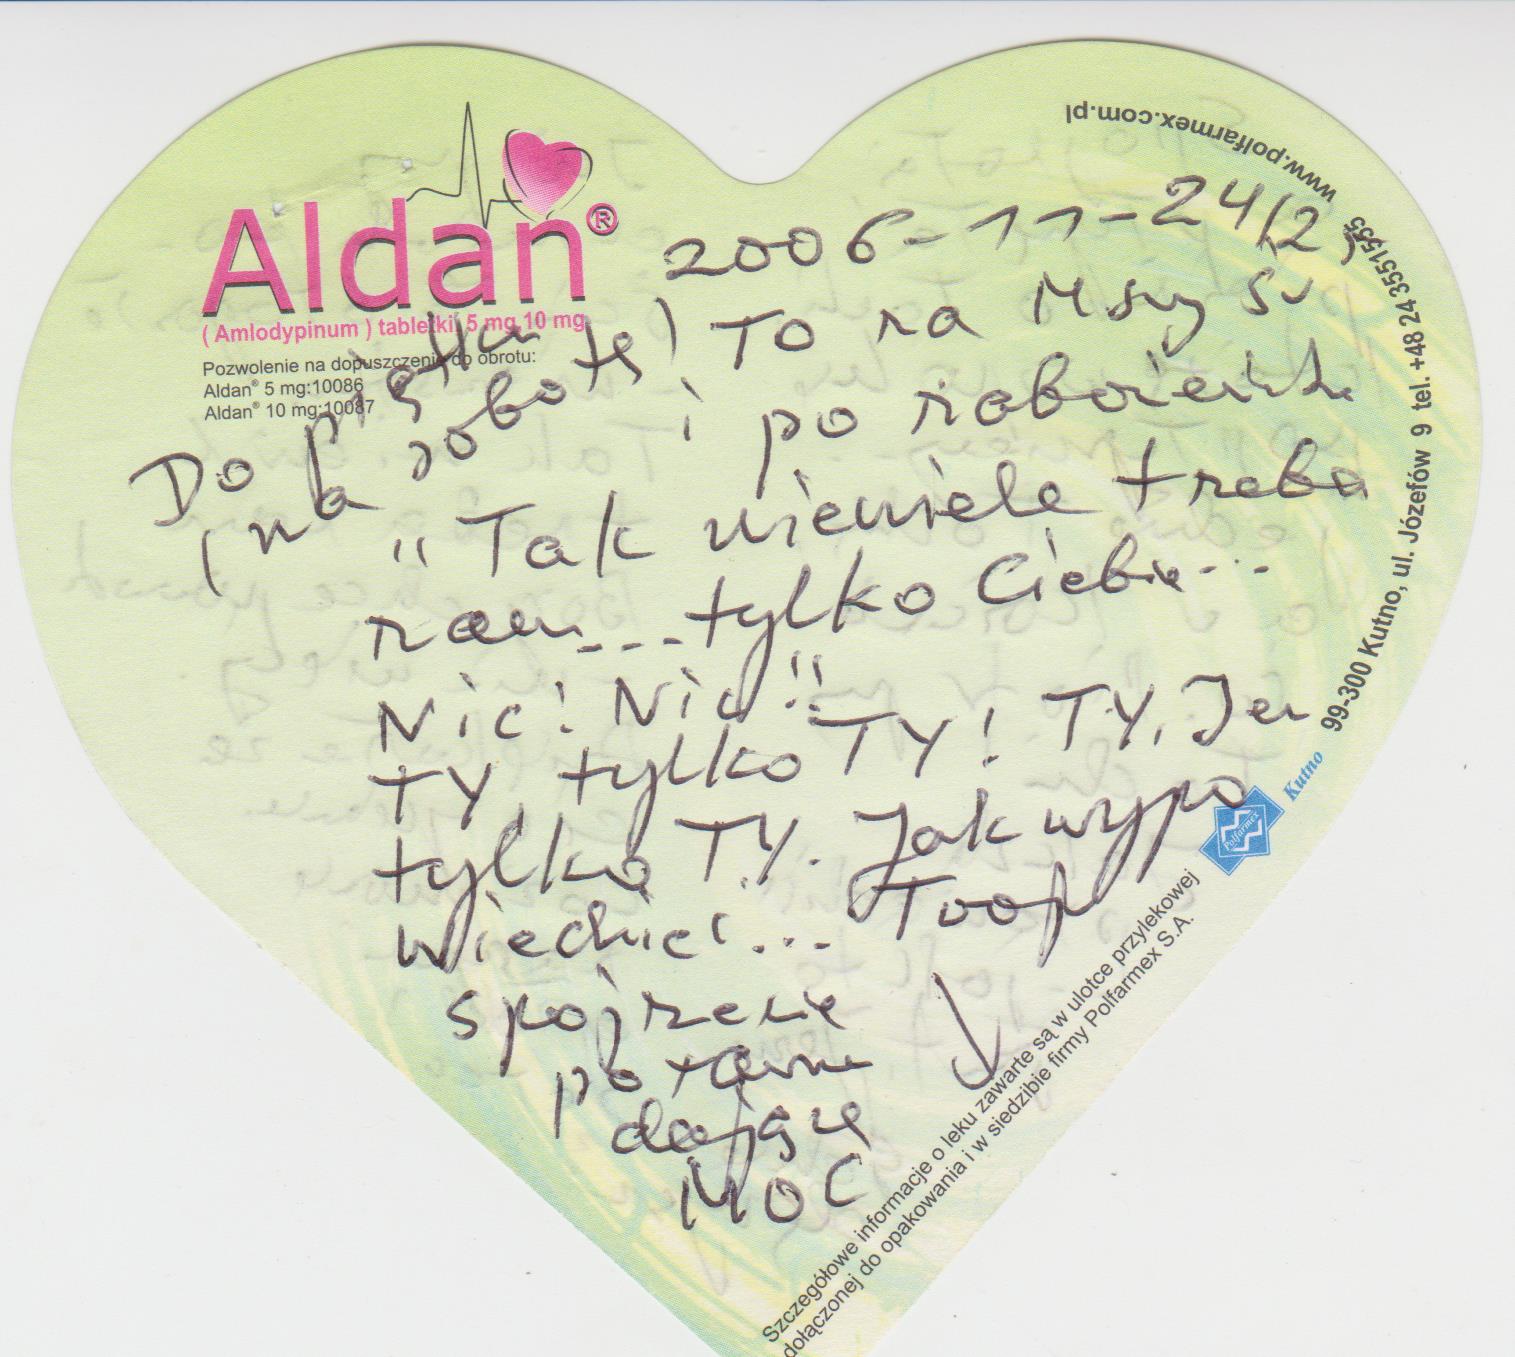 Aldan®
( Amlodypinum ) tabletki 5 mg,10 mg
Pozwolenie na dopuszczenie do obrotu:
Aldan® 5 mg:10086
Aldan® 10 mg:10087
www.polfarmex.com.pl
99-300 Kutno, ul. Józefów 9 tel. +48 24 3551555
Polfarmex Kutno
Szczegółowe informacje o leku zawarte są w ulotce przylekowej
dołączonej do opakowania i w siedzibie firmy Polfarmex S.A.
2006-11-24/2,
Do piątku
(na sobotę) To na Mszy Św
i po nabożeńst
"Tak niewiele treba
nam...tylko Ciebie...
Nic! Nic!!
TY tylko TY! TY, Jez
tylko TY. Jak wypo
wiedzieć... Twoje
spojrzenie
pełne
dające
MOC